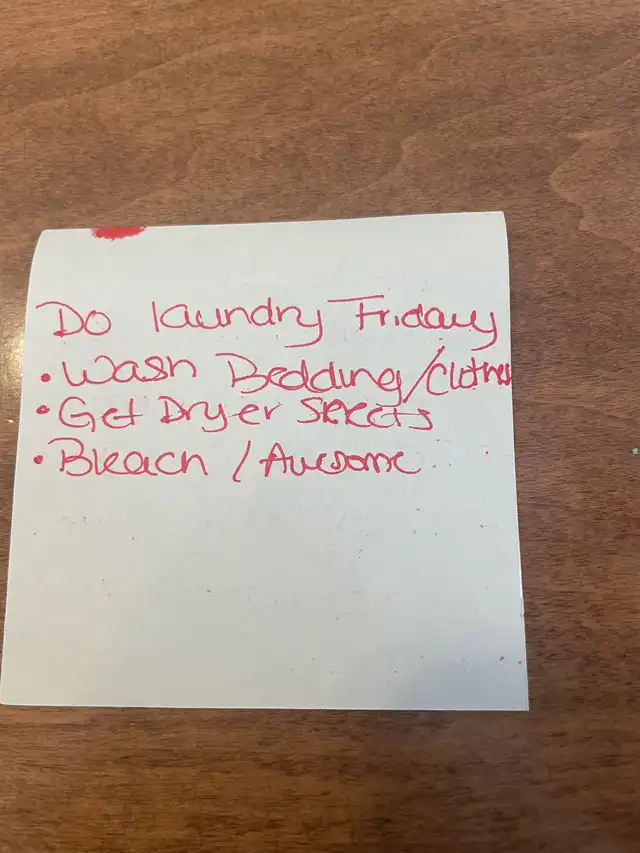 Do laundry Friday
• Wash Bedding/Clothes
• Get Dryer Sheets
• Bleach / Awesome